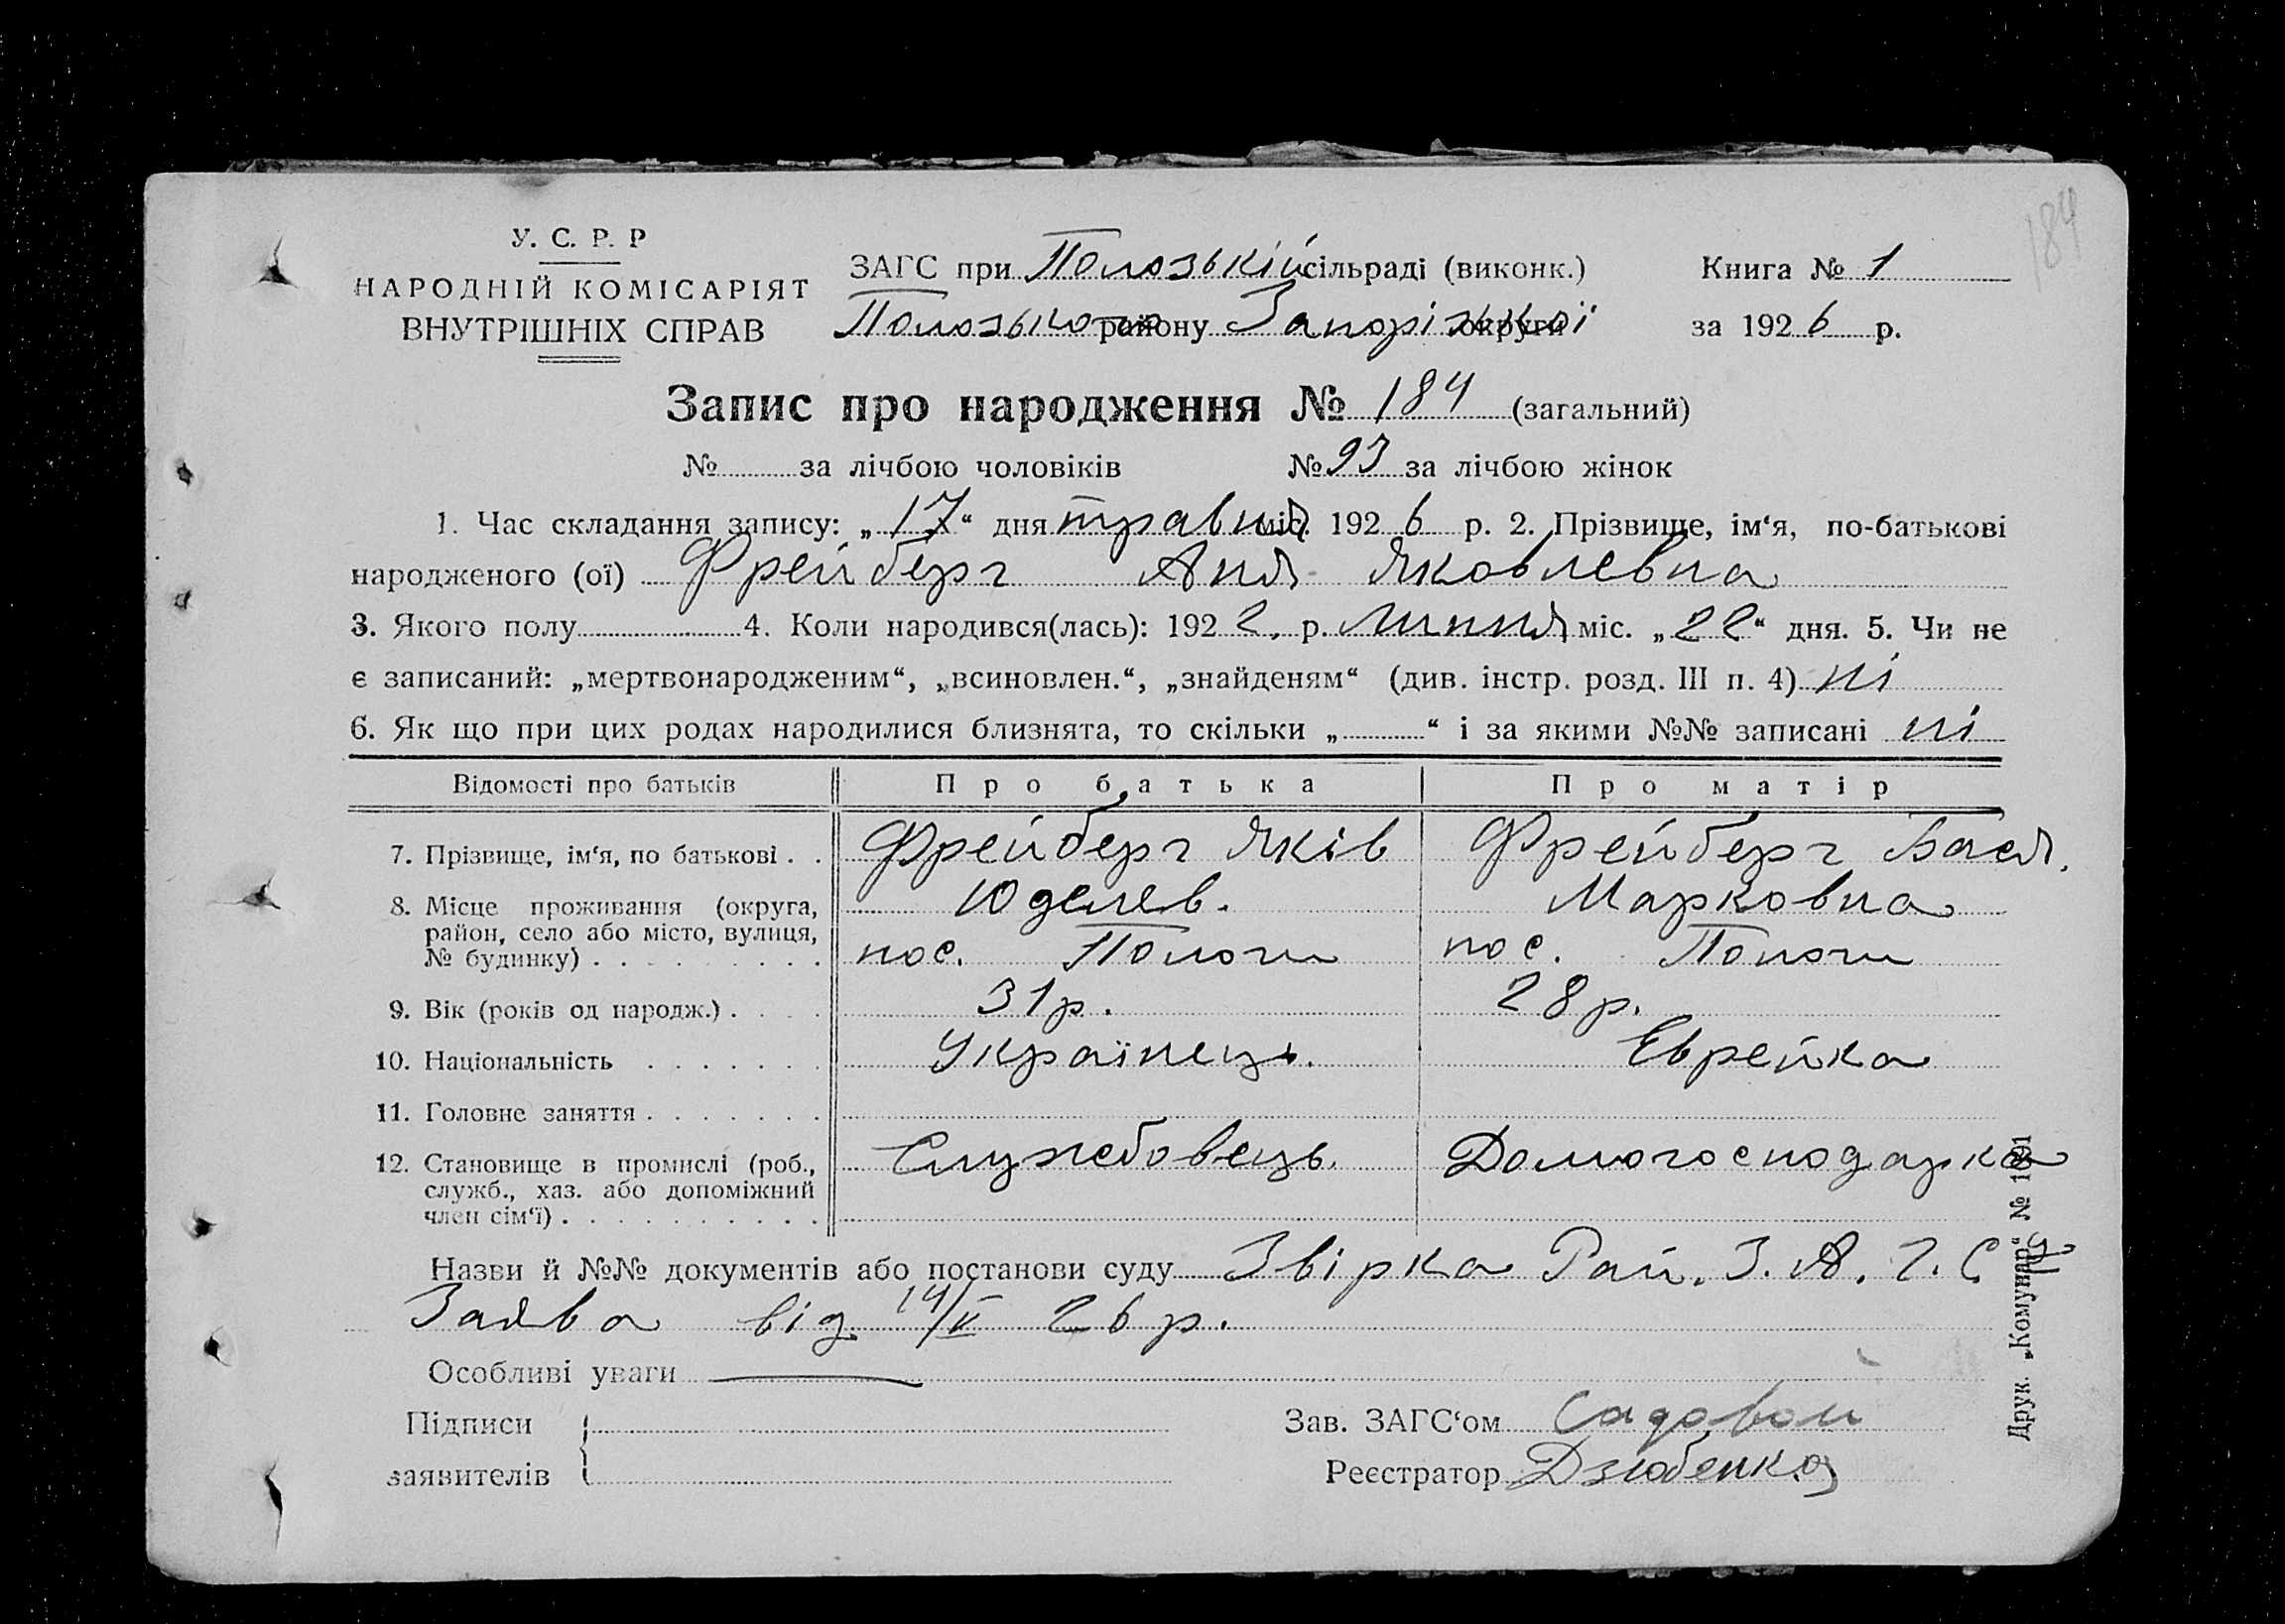 184
У. С. Р. Р
НАРОДНІЙ КОМІСАРІЯТ
ВНУТРІШНІХ СПРАВ
ЗАГС при Пологзькій сільраді (виконк.)
Пологзького району Запорізької округи
Книга № 1
за 1926 р.
Запис про народження № 184 (загальний)
№ за лічбою чоловіків № 93 за лічбою жінок
1. Час складання запису: „17“ дня травня міс. 1926 р. 2. Прізвище, ім‘я, по-батькові
народженого (ої) Фрейберг Аня Яковлевна
3. Якого полу 4. Коли народився(лась): 1922. р. Липня міс. „22“ дня. 5. Чи не
є записаний: „мертвонародженим“, „всиновлен.“, „знайденям“ (див. інстр. розд. III п. 4) ні
6. Як що при цих родах народилися близнята, то скільки „ “ і за якими №№ записані ні
Відомості про батьків Про батька Про матір
7. Прізвище, ім‘я, по батькові . . Фрейберг Яків Фрейберг Бася.
Юделев. Марковна
8. Місце проживання (округа,
район, село або місто, вулиця,
№ будинку) . . . . . . . . . пос. Пологи пос. Пологи
9. Вік (років од народж.) . . . . 31 р. 28 р.
10. Національність . . . . . . . Українець. Еврейка
11. Головне заняття . . . . . . .
12. Становище в промислі (роб.,
служб., хаз. або допоміжний
член сім‘ї) . . . . . . . . . . Службовець. Домогосподарка
Назви й №№ документів або постанови суду Звірка Рай. З. А. Г. С
Заява від 14/V 26 р.
Особливі уваги
Підписи
заявителів
Зав. ЗАГС‘ом Садовой
Реєстратор Дзюбенко
Друк. „Комунар“ №